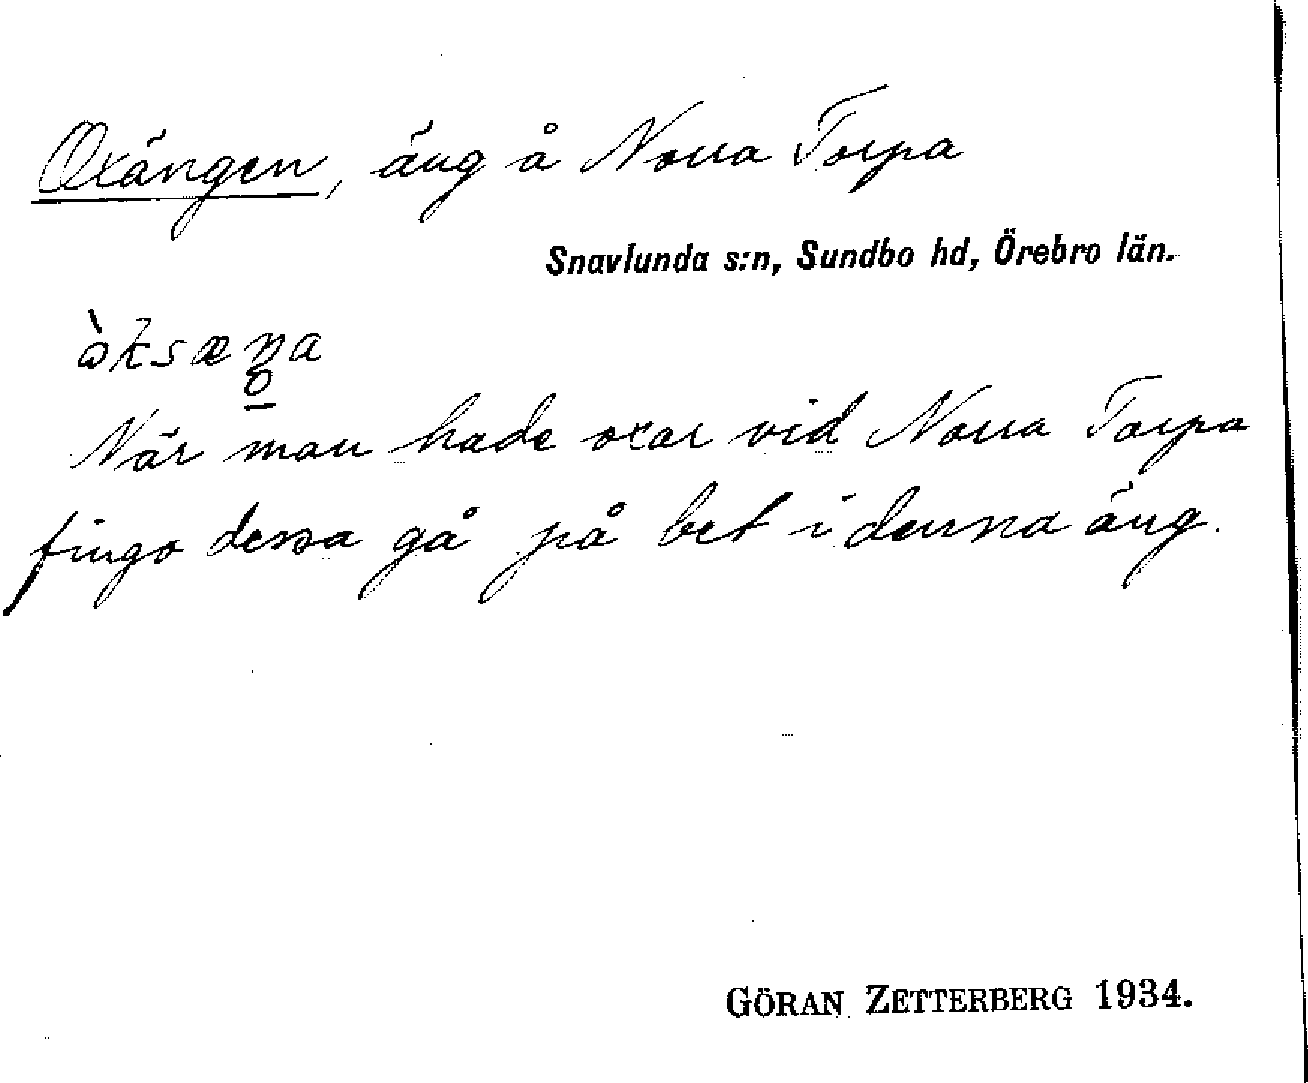 Oxängen, äng å Norra Torpa
Snavlunda s:n, Sundbo hd, Örebro län.
När man hade oxar vid Norra Torpa
fingo dessa gå på bet i denna äng.
GÖRAN ZETTERBERG 1934.